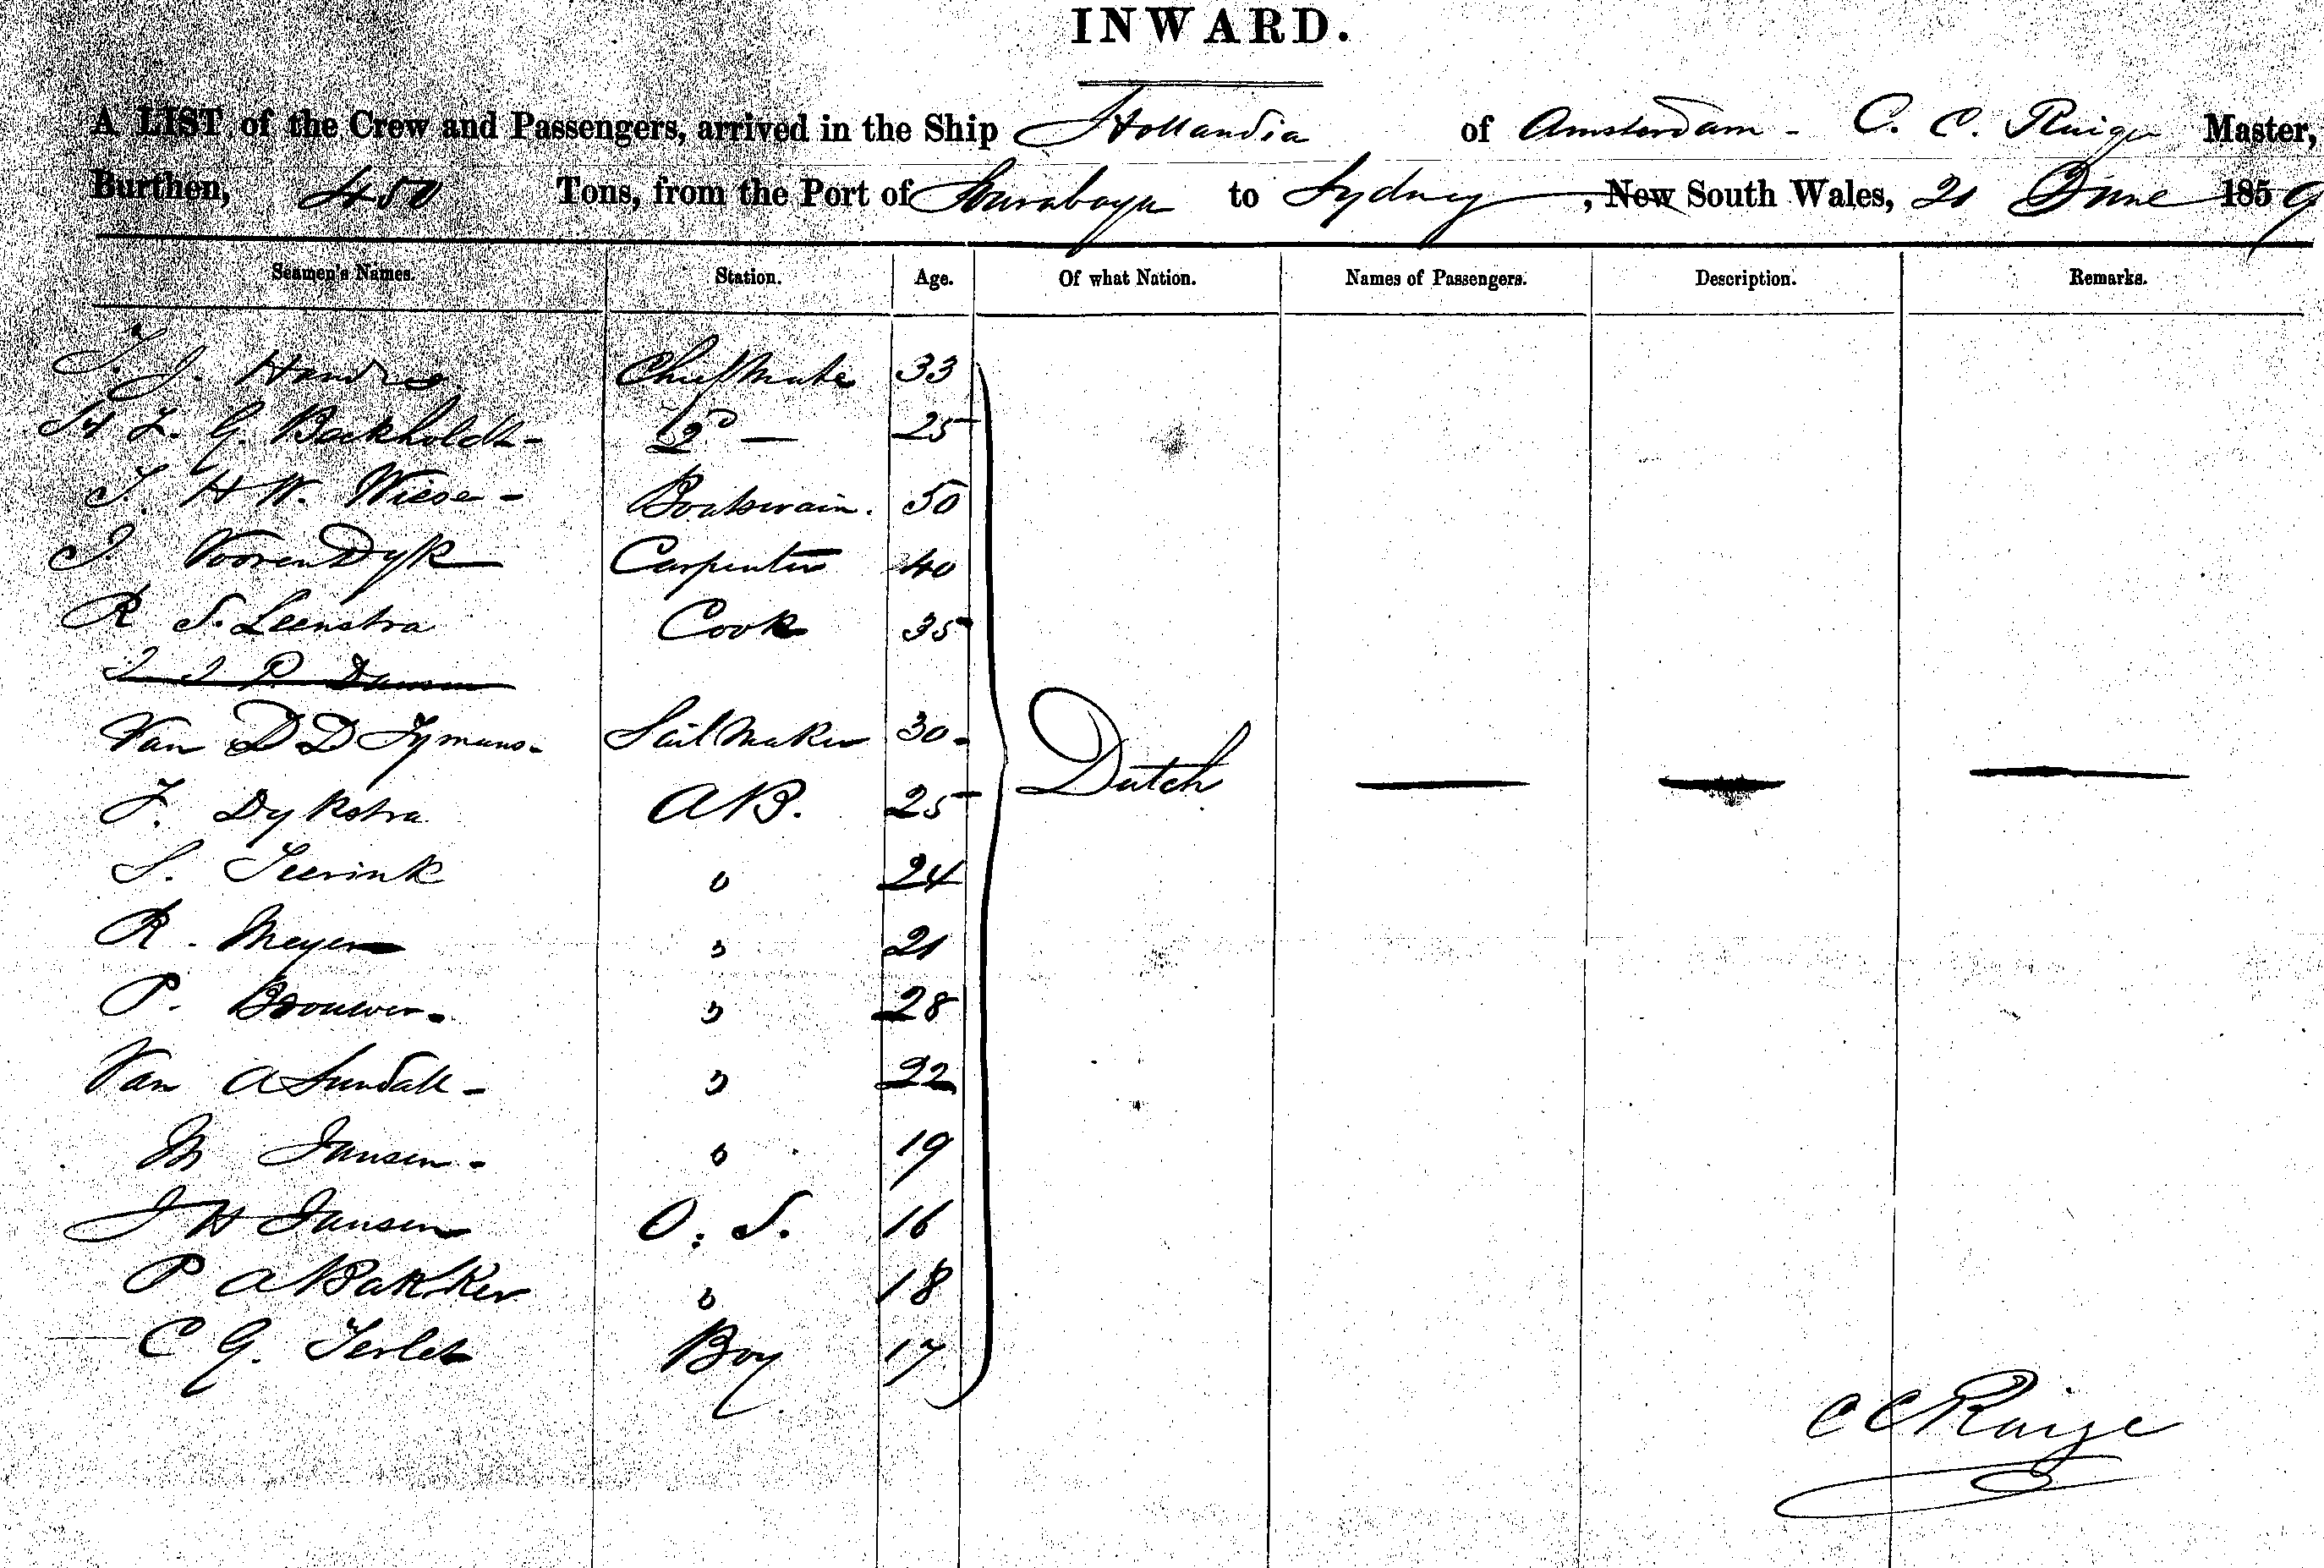 INWARD.
A LIST of the Crew and Passengers, arrived in the Ship Hollandia of Amsterdam - C. C. Ruige Master,
Burthen, 450 Tons, from the Port of Sourabaya to Sydney, New South Wales, 21 June 1859
Seamen's Names. Station. Age. Of what Nation. Names of Passengers. Description. Remarks.
J. Chief Mate 33
G. Backholdt - 2d — 25
J. H W. Wiese - Boatswain. 50
J. VoorenDyk Carpenter 40
R S. Leenstra Cook 35
J J P
Van D D Tymans - Sail Maker 30 -
J. Dykstra AB. 25 Dutch
S. Teerink " 24
R. Meyer " 21
P. Brouwer - " 28
Van A - " 22
M Jansen - " 19
J H Jansen O. S. 16
P A Bakker " 18
C G. Terlet Boy 17
C C Ruige